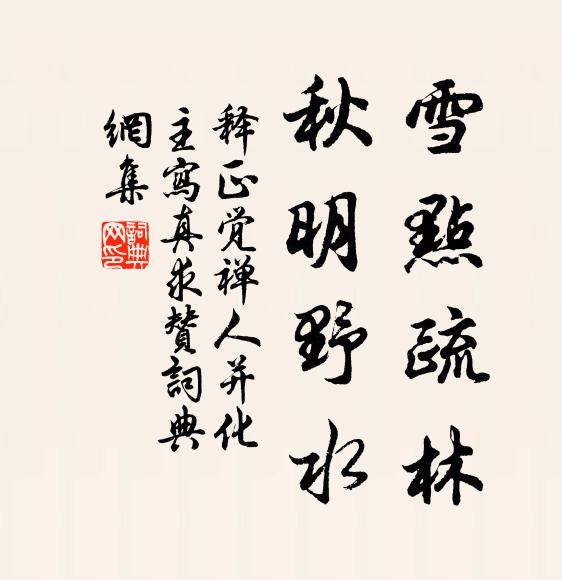 雪點疏林
秋明野水
释正觉禅人并化
主寫真求贊詞典
網集
詞典網印